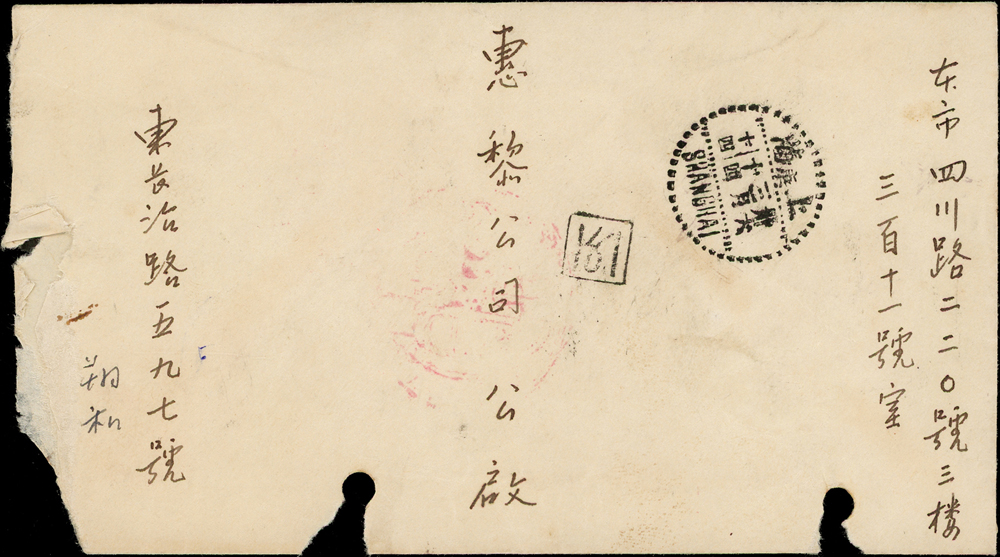 本市四川路二二〇號三楼
三百十一號室
上海
SHANGHAI
惠黎公司 公啟
東長治路五九七號
翔和